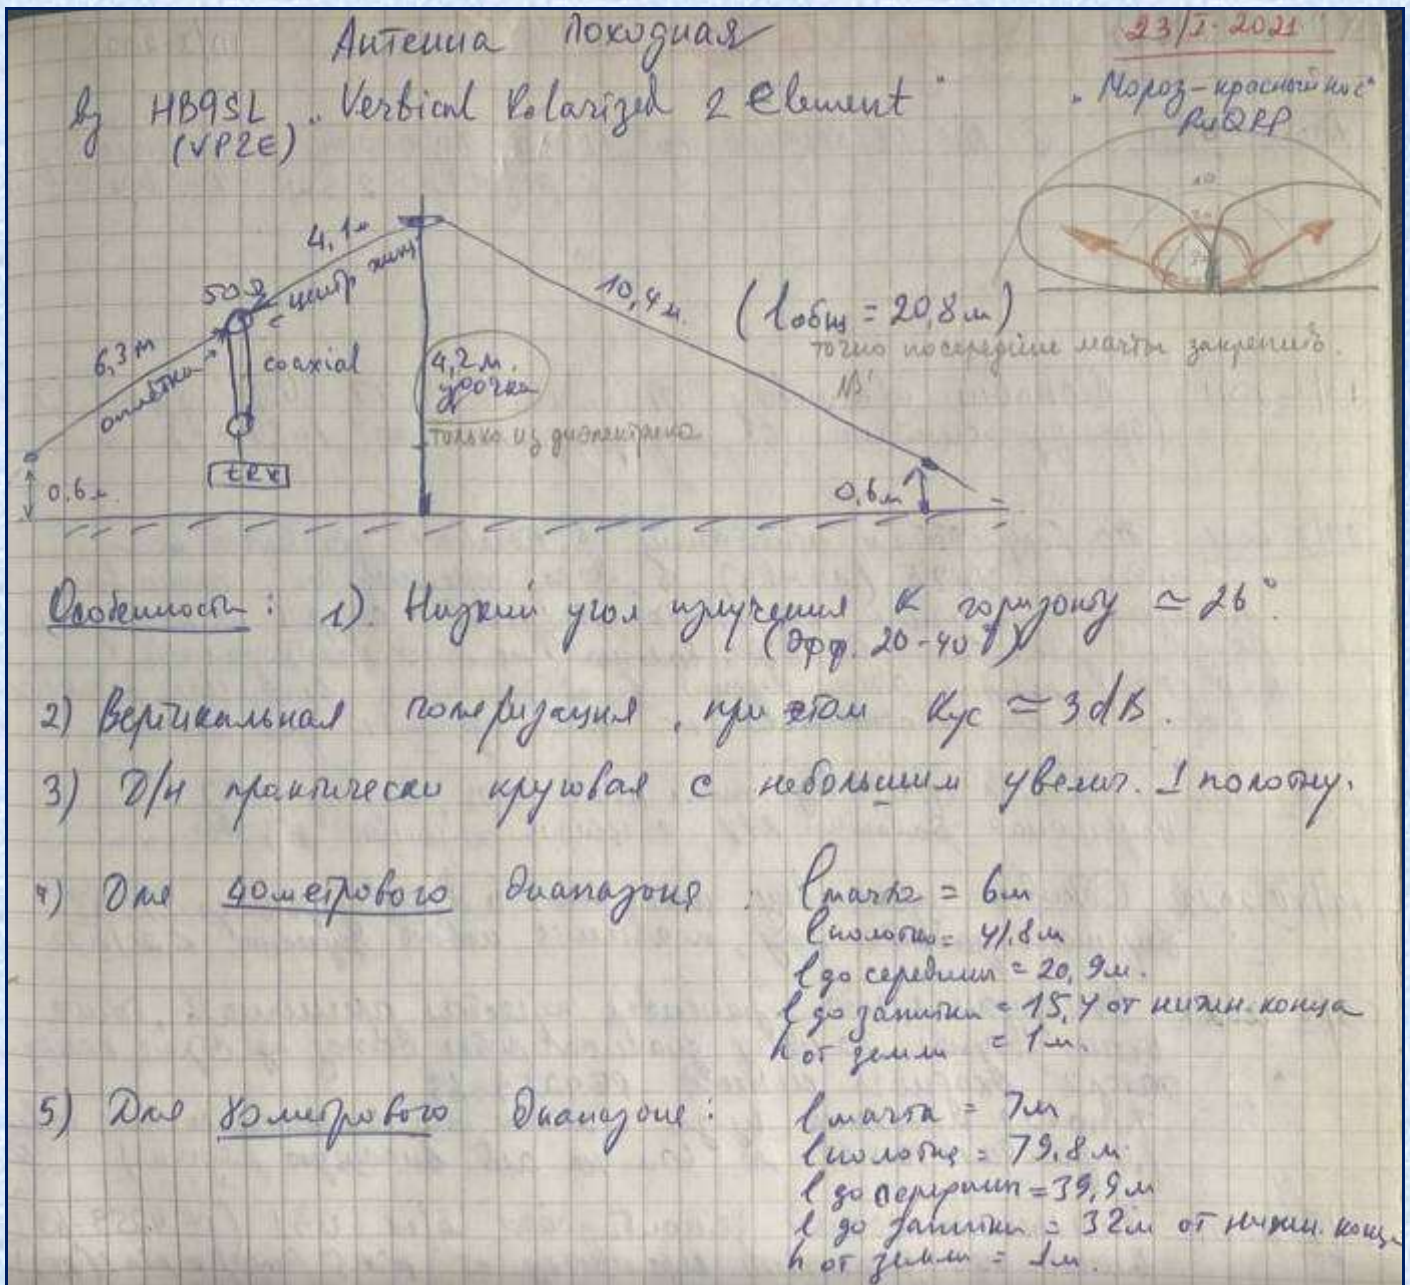 Антенна походная
23/I-2021
by HB9SL „Vertical Polarized 2 Element"
(VP2E)
„Мороз-красный нос"
RuQRP
4,1м
центр. жила
50Ω
6,3м
оплётка
coaxial
TRX
0,6м.
4,2м.
удочка
только из диэлектрика
10,4м.
(lобщ = 20,8м)
точно посередине мачты закрепить.
0,6м
Особенность: 1). Низкий угол излучения к горизонту ≃ 26°.
(Эфф. 20-40°)
2) Вертикальная поляризация, при этом Кус ≃ 3dB.
3) Д/н практически круговая с небольшим увелич. ⊥ полотну.
4) Для 40метрового диапазона:
lмачта = 6м
lполотно = 41,8м
l до середины = 20,9м.
l до запитки = 15,4 от нижн. конца
h от земли = 1м.
5) Для 80метрового диапазона:
lмачта = 7м
lполотна = 79,8м
l до середины = 39,9м
l до запитки = 32м от нижн. конца
h от земли = 1м.